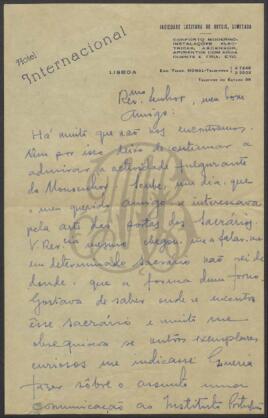 Hotel
Internacional
LISBOA
SOCIEDADE LUSITANA DE HOTEIS, LIMITADA
CONFORTO MODERNO,
INSTALAÇÕES ELE-
CTRICAS, ASCENSOR,
APOSENTOS COM AGUA
QUENTE E FRIA, ETC.
Rev.mo Senhor, meu bom
Amigo:
Há muito que não nos encontramos.
Nem por isso deixo de continuar a
admirar a actividade fulgurante
do Monsenhor. Soube, um dia, que
o meu querido amigo se interessava
pela arte das portas dos sacrários.
V. Rev.cia mesmo chegou-me a falar, em
um determinado sacrário não sei de
donde, que a forma dum forno.
Gostava de saber onde se encontra
êsse sacrário e muito me
obsequiava se outros exemplares
curiosos me indicasse. Queria
fazer sôbre o assunto uma
comunicação ao Instituto Português